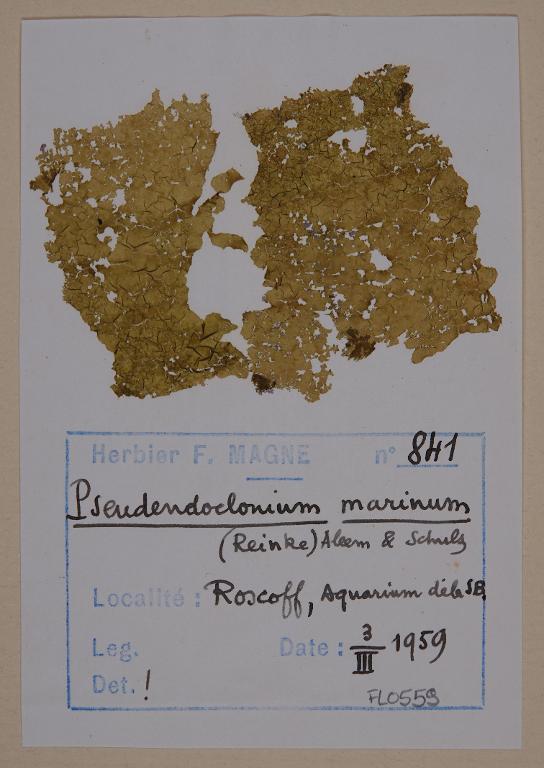 Herbier F. MAGNE n° 841
Pseudendoclonium marinum
(Reinke) Aleem & Schulz
Localité : Roscoff, Aquarium de la S.B.
Leg. Date : 3/III 1959
Det. !
FLO559